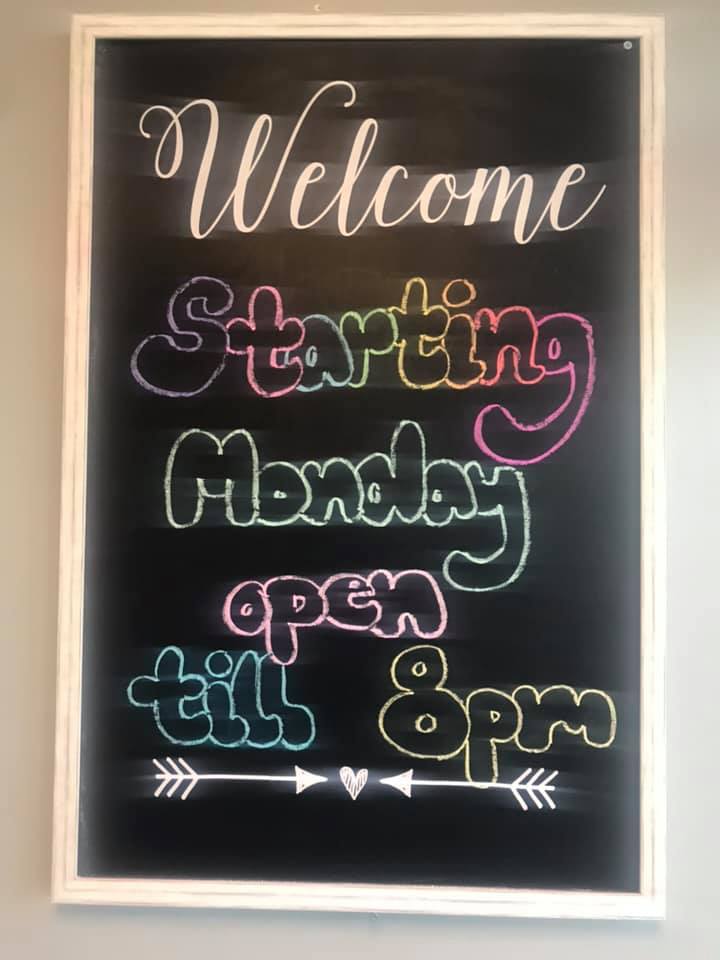 Welcome
Starting
Monday
open
till 8pm